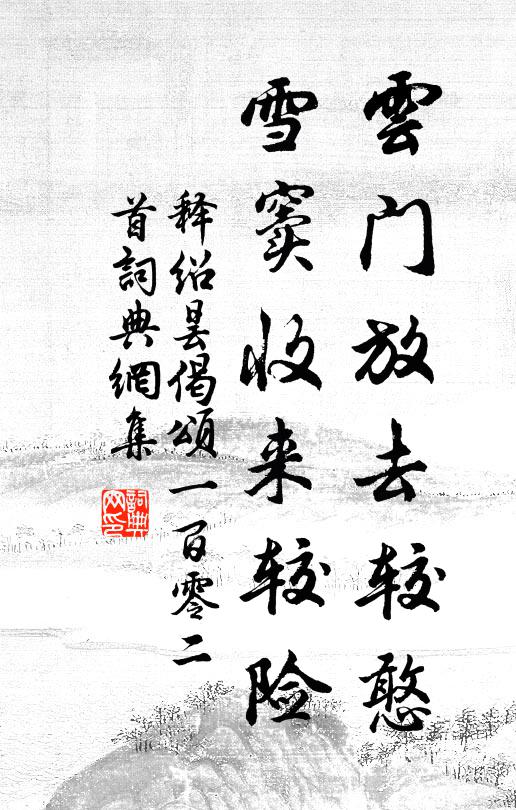 雲门放去较憨
雪窦收来较险
释绍昙偈颂一百零二
首詞典網集
詞典
网印